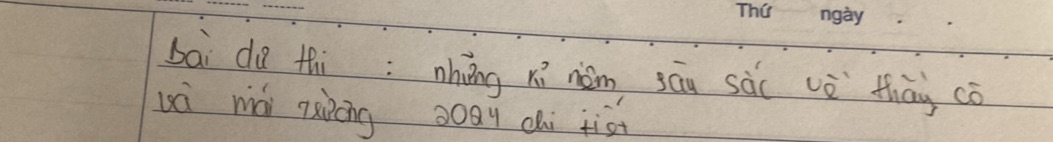 Thứ ngày . .
Bài dự thi : những kỉ niệm sâu sắc về thầy cô
và mái trường 2024 chi tiết